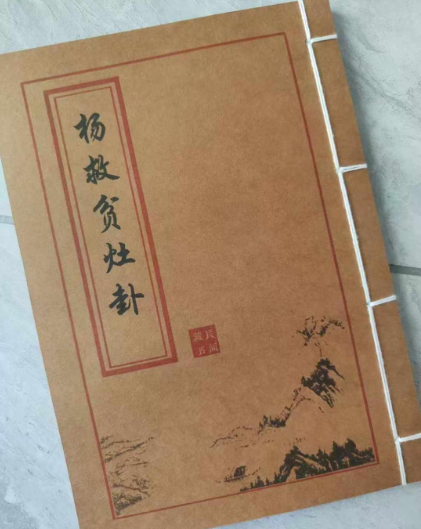 杨救贫灶卦